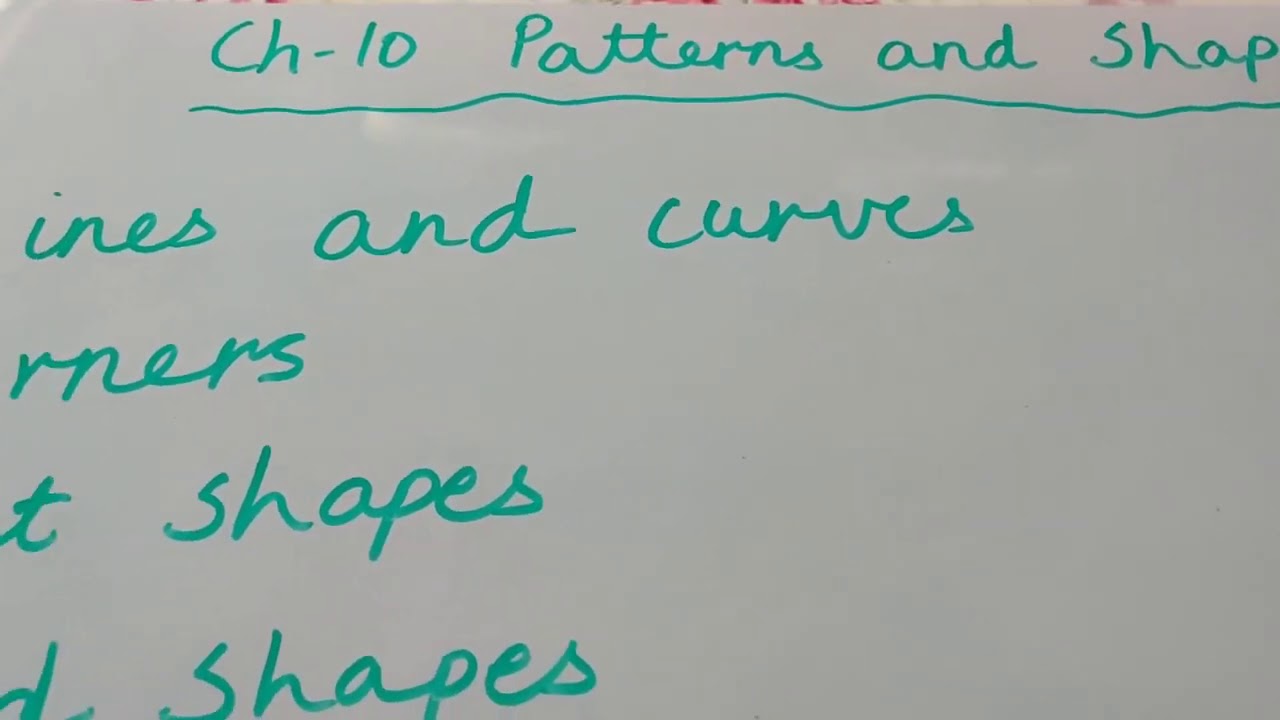 Ch-10 Patterns and Shap
ines and curves
rners
t shapes
d shapes